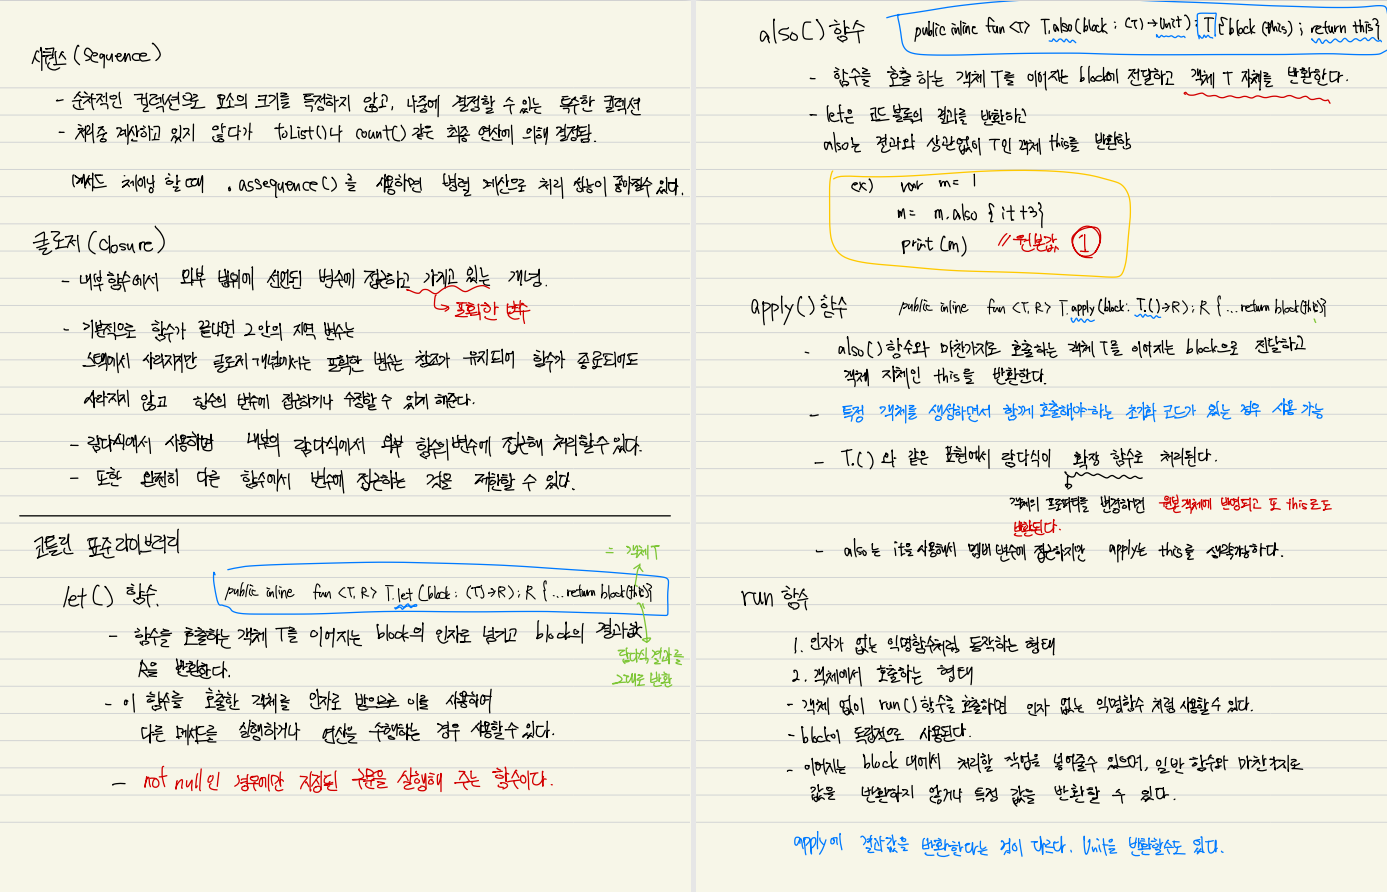 시퀀스 (Sequence)
- 순차적인 컬렉션으로 요소의 크기를 특정하지 않고, 나중에 결정할 수 있는 특수한 컬렉션
- 처리중 계산하고 있지 않다가 toList()나 count() 같은 최종 연산에 의해 결정됨.
메서드 체이닝 할 때 .assequence()를 사용하면 병렬 계산으로 처리 성능이 좋아질수 있다.
클로저 (closure)
- 내부 함수에서 외부 범위에 선언된 변수에 접근하고 가지고 있는 개념.
→ 포획한 변수
- 기본적으로 함수가 끝나면 그 안의 지역 변수는
스택에서 사라지지만 클로저 개념에서는 포획한 변수는 참조가 유지되어 함수가 종료되어도
사라지지 않고 함수의 변수에 접근하거나 수정할 수 있게 해준다.
- 람다식에서 사용하면 내부의 람다식에서 외부 함수의 변수에 접근해 처리할수 있다.
- 또한 완전히 다른 함수에서 변수에 접근하는 것을 제한할 수 있다.
코틀린 표준 라이브러리
= 객체 T
let() 함수.
public inline fun <T, R> T.let (block: (T)→R); R { ... return block(this)}
- 함수를 호출하는 객체 T를 이어지는 block의 인자로 넘기고 block의 결과값
R을 반환한다.
람다식 결과를
그대로 반환
- 이 함수를 호출한 객체를 인자로 받으므로 이를 사용하여
다른 메서드를 실행하거나 연산을 수행하는 경우 사용할수 있다.
- not null인 경우에만 지정된 구문을 실행해 주는 함수이다.
also() 함수
public inline fun <T> T.also(block: (T)→Unit): T {block (this); return this}
- 함수를 호출 하는 객체 T를 이어지는 block에 전달하고 객체 T 자체를 반환한다.
- let은 코드 블록의 결과를 반환하고
also는 결과와 상관없이 T인 객체 this를 반환함
ex) var m = 1
m = m.also {it+3}
print (m) // 원본값 1
apply() 함수
public inline fun <T, R> T.apply (block: T.()→R); R { ... return block(this)}
- also() 함수와 마찬가지로 호출하는 객체 T를 이어지는 block으로 전달하고
객체 자체인 this를 반환한다.
- 특정 객체를 생성하면서 함께 호출해야 하는 초기화 코드가 있는 경우 사용 가능
- T.() 와 같은 표현에서 람다식이 확장 함수로 처리된다.
객체의 프로퍼티를 변경하면 원본객체에 반영되고 또 this로도
반환된다.
- also는 it을 사용해서 멤버 변수에 접근하지만 apply는 this를 생략가능하다.
run 함수
1. 인자가 없는 익명함수처럼 동작하는 형태
2. 객체에서 호출하는 형태
- 객체 없이 run() 함수를 호출하면 인자 없는 익명함수 처럼 사용할수 있다.
- block이 독립적으로 사용된다.
- 이어지는 block 내에서 처리할 작업을 넣어줄수 있으며, 일반 함수와 마찬가지로
값을 반환하지 않거나 특정 값을 반환할 수 있다.
apply에 결과값을 반환한다는 것이 다르다. Unit을 반환할수도 있다.